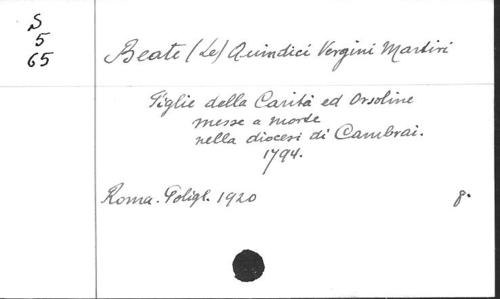 S
5
65
Beate (Le) Quindici Vergini Martiri
Figlie della Carità ed Orsoline
messe a morte
nella diocesi di Cambrai.
1794.
Roma. Poligl. 1920
8.